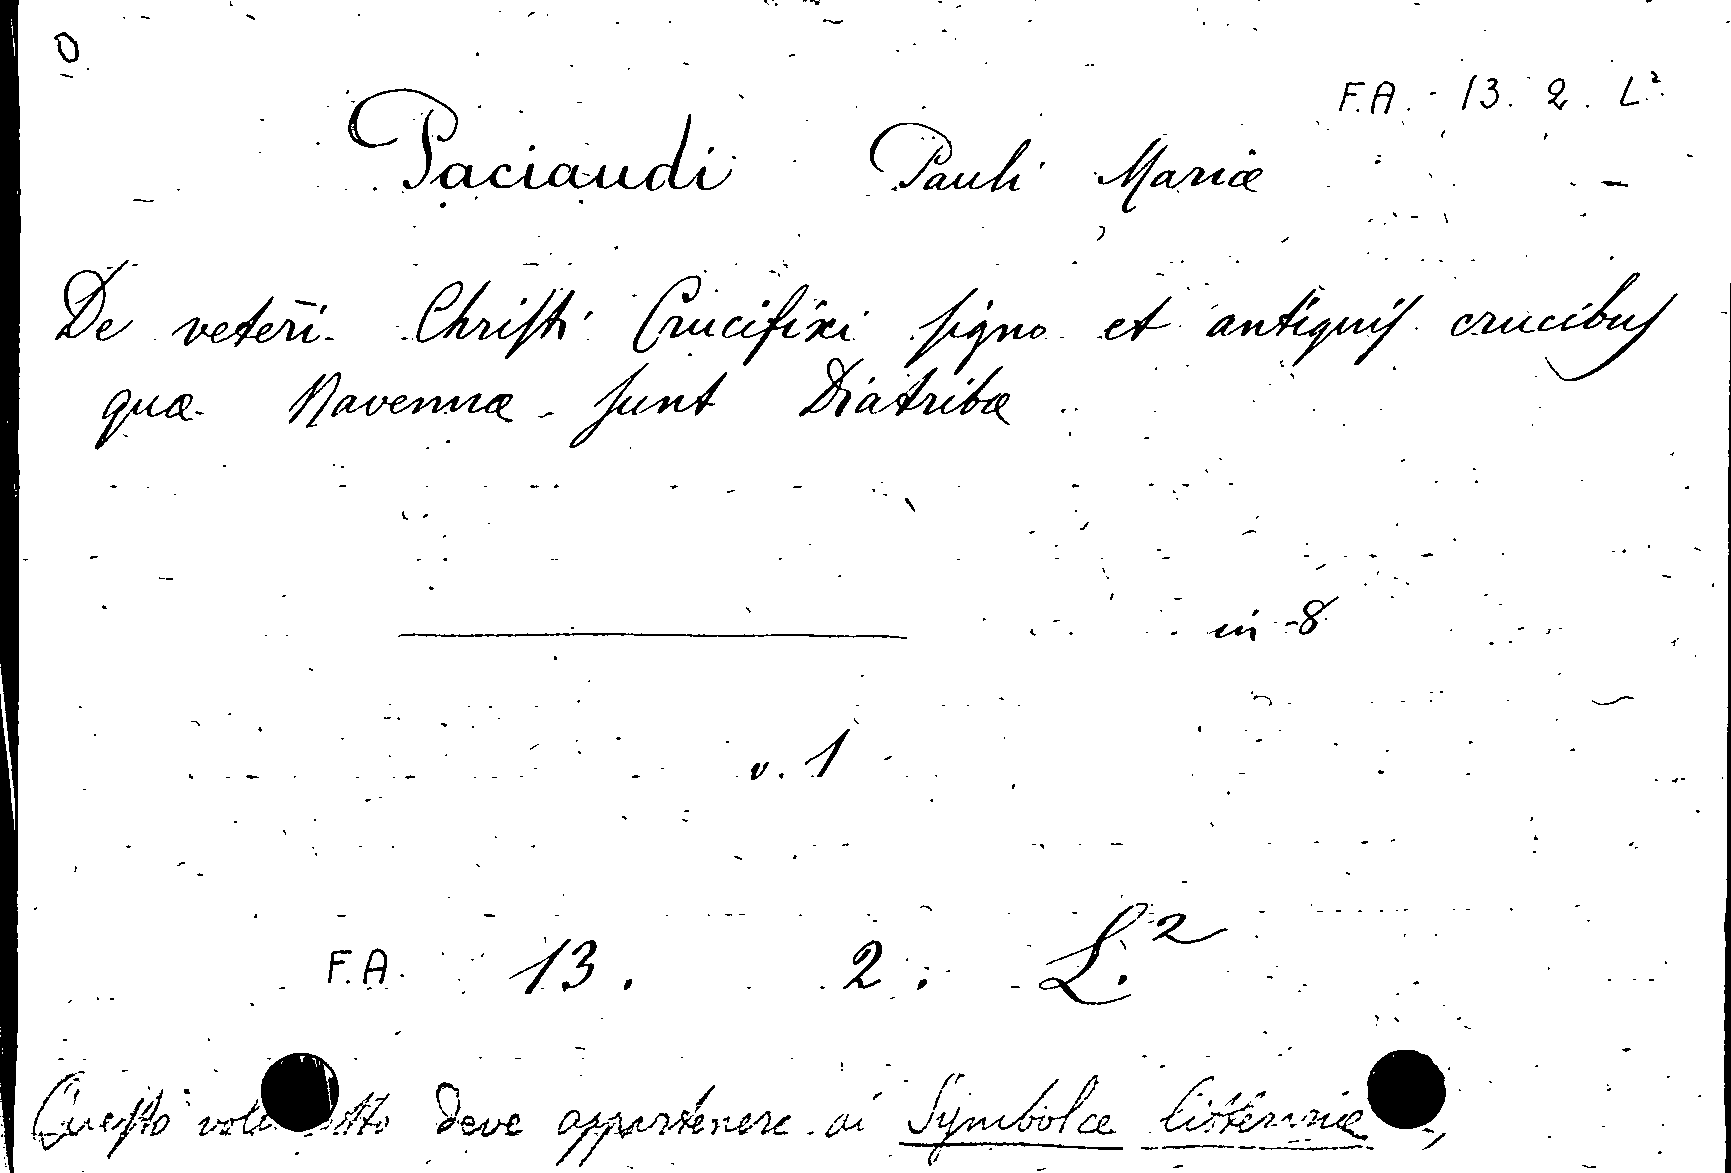 O
F.A. 13. 2. L²
Paciaudi Pauli Mariæ
De veteri Christi Crucifixi signo et antiquis crucibus
quæ Ravennæ sunt Diatribæ
in-8
v. 1
F.A. 13. 2. L.²
Questo deve appartenere ai Symbolæ